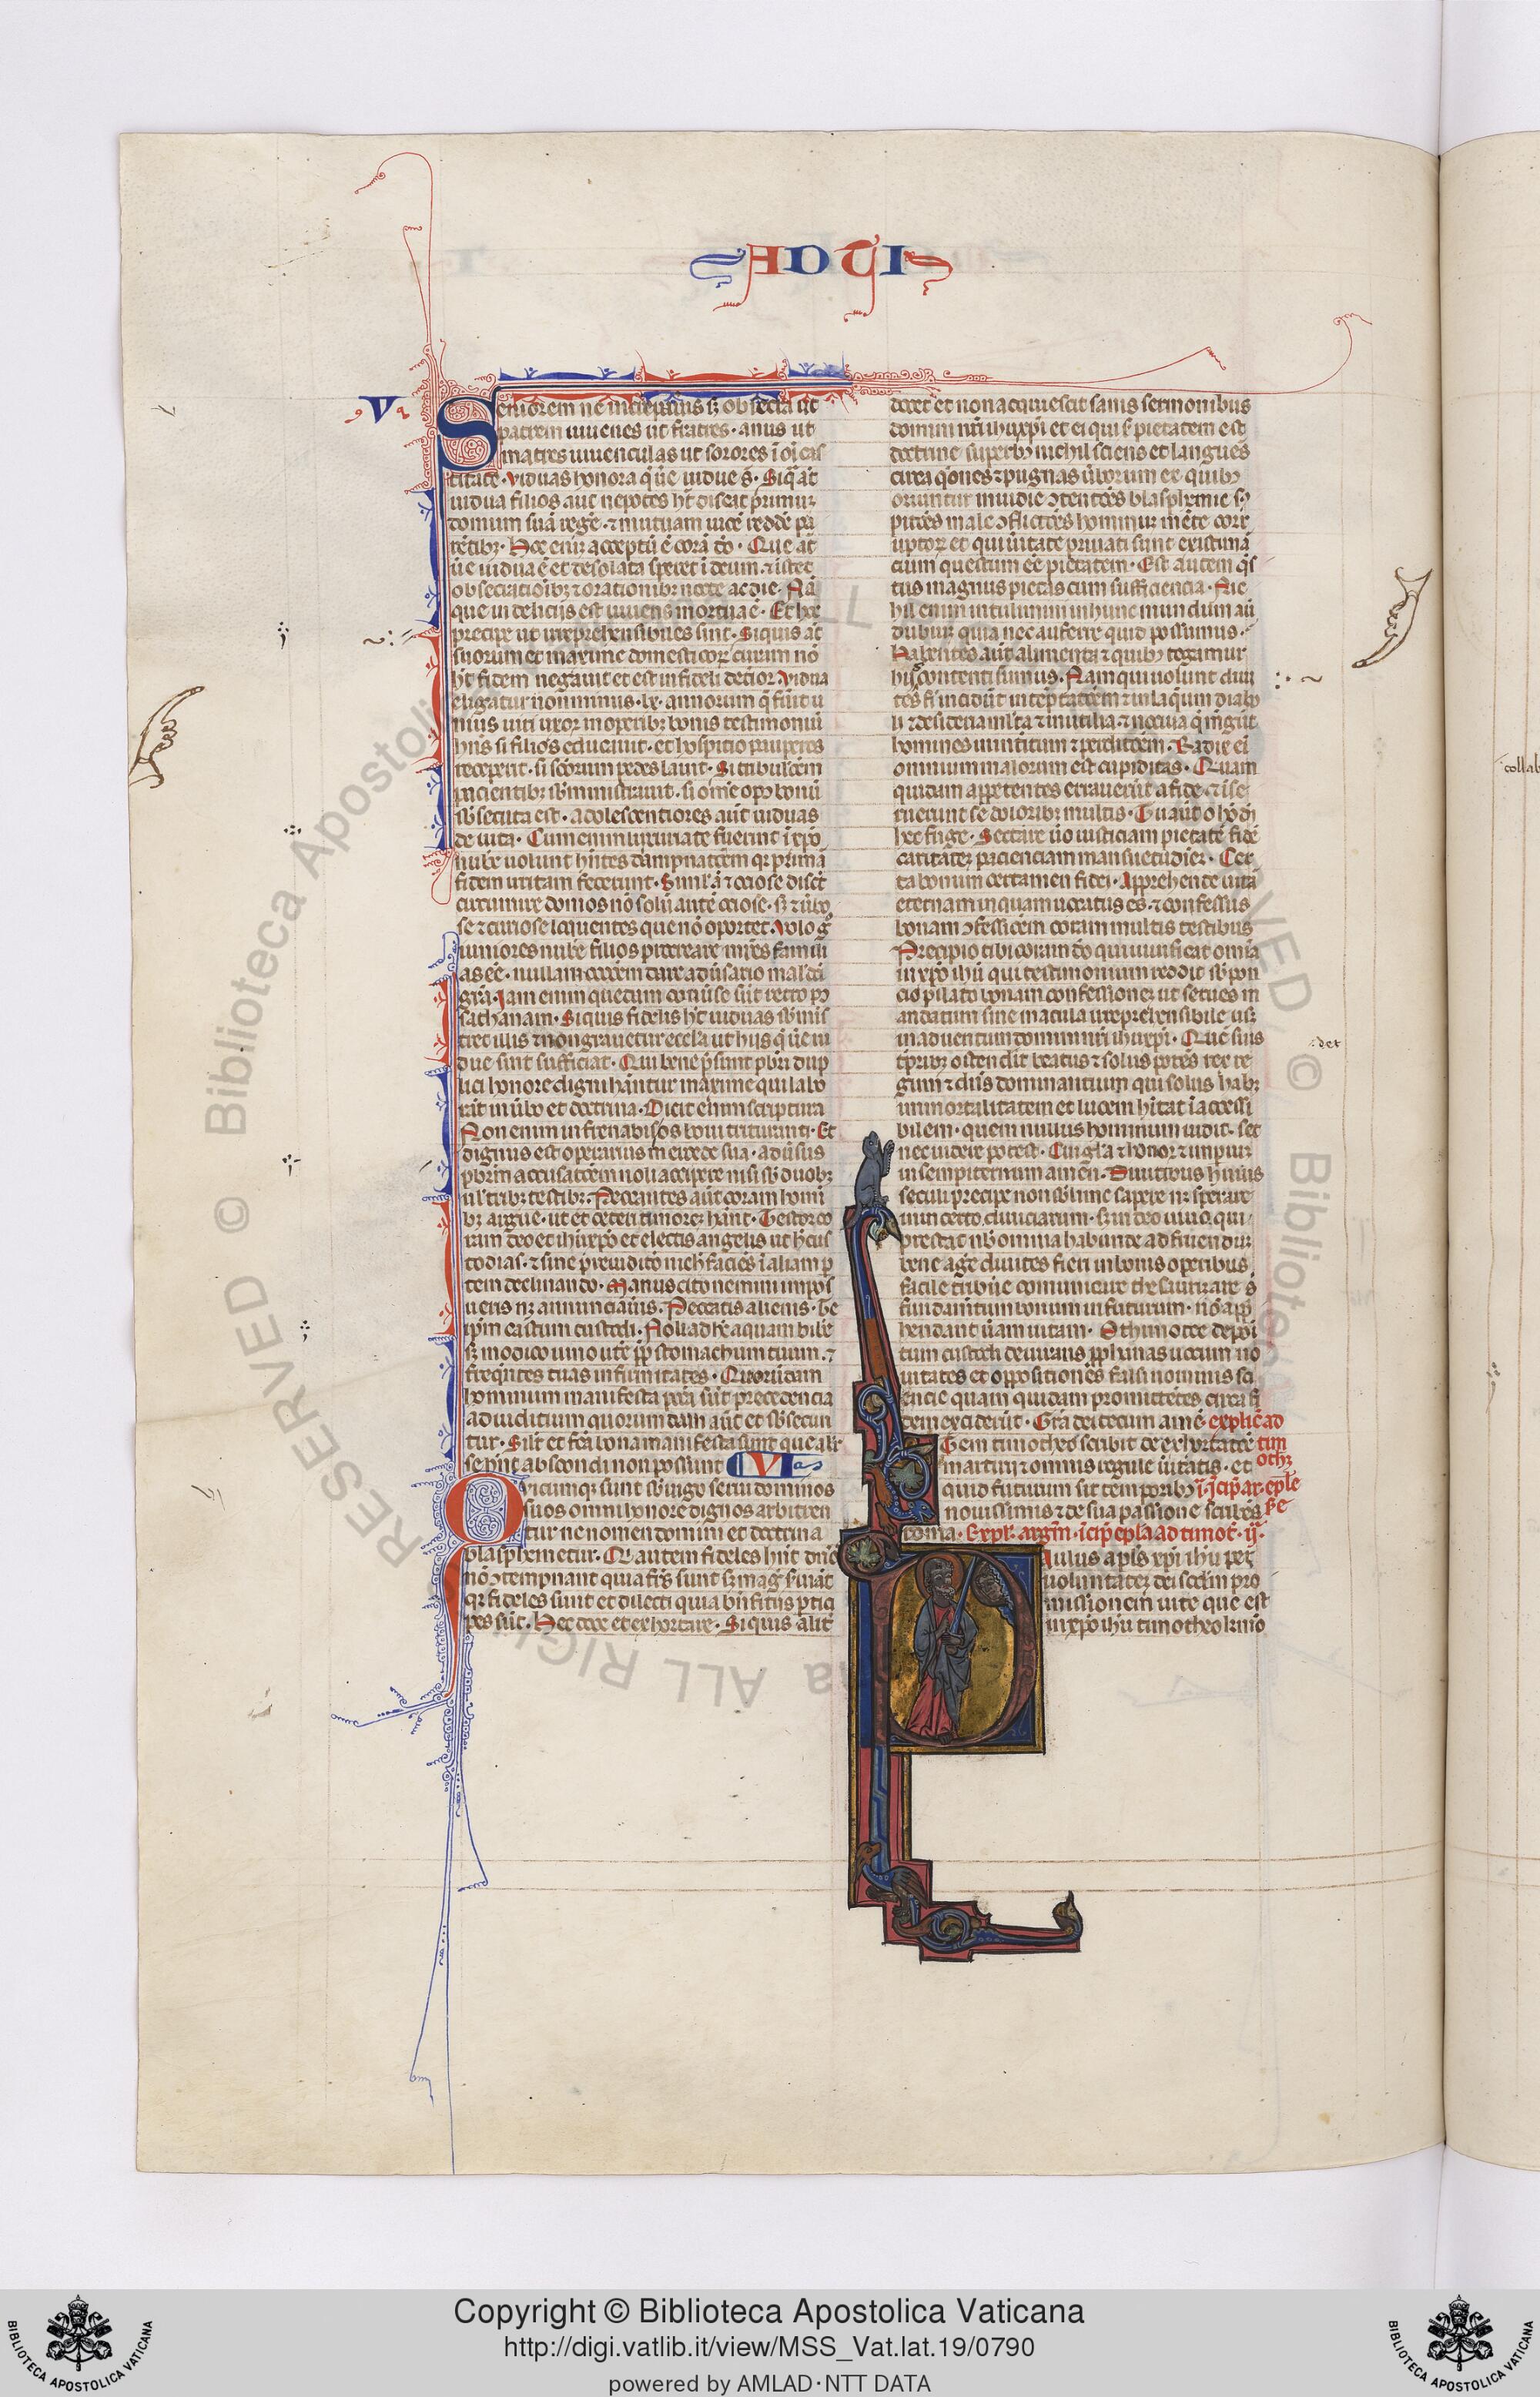 AD TI
V
Seniorem ne increpaueris sȝ obsecra ut
patrem iuuenes ut fratres · anus ut
matres iuuenculas ut sorores ī oī cas
titate · Viduas honora q̄ ūe uidue s̄t · Siq̄ aūt
uidua filios aut nepotes hȝ discat primum
domum suā rege · ⁊ mutuam uicē reddē pa
rētibȝ · Hoc enī acceptū ē corā do · Que aūt
ūe uidua ē et desolata speret ī deum · ⁊ īstet
obsecratiōibȝ ⁊ orationibȝ nocte ac die · Nā
que in deliciis est uiuens mortua ē · Et hoc
precipe ut irreprehensibiles sint · Siquis aūt
suorum et maxime domesticoȝ curam nō
hȝ fidem negauit et est infideli detior Vidua
eligatur non minus · lx · annorum q̄ fūit u
nius uiri uxor in operibȝ bonis testimoniū
hn̄s si filios educauit · et hospitio pauperes
recepit · si scōrum pedes lauit · Si tribulatōem
pacientibȝ sb̄ministrauit · si omē opȝ bonū
sb̄secuta est · adolescentiores aūt uiduas
deuita · Cum enim luxuriate fuerint ī xp̄o
nube uolunt hn̄tes dampnatōem qȝ primā
fidem irritam fecerunt · Simul ⁊ ociose discūt
circumire domos nō solū autē ociose · sȝ ⁊ ūbo
se ⁊ curiose loquentes que nō oportet · Volo ḡ
iuniores nube filios procreare mr̄es famili
as eē · nullam occōem dare aduersario maldci
grā · Iam enim quedam conūse sūt retro po
sathanam · Siquis fidelis hȝ uiduas sb̄minis
tret illis ⁊ non grauetur ecc̄la ut hiis q̄ ūe ui
due sint sufficiat · Qui bene p̄sunt pbr̄i dup
lici honore digni hantur maxime qui labo
rāt in ūbo et doctrina · Dicit enim scriptura
Non enim infrenabis os boui trituranti · Et
dignus est operarius mercede sua · adūsus
pbr̄m accusatōem noli accipere nisi sb̄ duobȝ
ul tribȝ testibȝ · Peccantes aūt coram homi
bȝ argue · ut et ceteri timorē hānt · Testor co
ram deo et ih̄u xp̄o et electis angelis ut hec cus
todias · ⁊ sine preiudicio nich̄ faciēs ī aliam p
tem declinando · Manus cito nemini impos
ueris nȝ annunciaūis · Peccatis alienis · Te
ip̄m castum custodi · Noli adhc̄ aquam bibe
sȝ modico uino utē pp̄ stomachum tuum · ⁊
freq̄ntes tuas infirmitates · Quorūdam
hominum manifesta pcc̄a sūt precedencia
ad iuditium quorumdam aūt et sb̄secun
tur · Silr̄ et fca bona manifesta sunt que alr̄
se hn̄t abscondi non possunt VI
Quicumqȝ sunt sb̄ iugo serui dominos
suos omni honore dignos arbitren
tur ne nomen domini et doctrina
blasphemetur · Qi autem fideles hn̄t dn̄o
nō ɔtempnant quia frēs sunt sȝ mag̅ s̄uiāt
qȝ fideles sunt et dilecti quia bn̄ficiis ptic
pes sūt · Hec doce et exhortare · Siquis alit
docet et non acquiescit sanis sermonibus
domini nr̄i ih̄u xp̄i et ei qui s̄ pietatem est
doctrine superbȝ nichil sciens et langues
circa q̄ones ⁊ pugnas ūborum ex quibȝ
oriuntur inuidie ɔtentōes blasphemie sp̄
pitōes male ɔflictatōes hominum mēte corr
uptoȝ et qui ūitate priuati sunt existimā
cium questum eē pietatem · Est autem q̄s
tus magnus pietas cum sufficiencia · Nic
hil enim intulimus in hunc mundum aū
dubium quia nec auferre quid possumus ·
Habentes aūt alimenta ⁊ quibȝ tegamur
hiis contenti sumus · Nam qui uolunt diui
tes fi incidūt in temptatōem ⁊ in laqūm diabo
li ⁊ desideria mlta ⁊ inutilia ⁊ nociua q̄ mḡūt
homines in interitum ⁊ perditōem · Radix ei
omnium malorum est cupiditas · Quam
quidam appetentes errauerūt a fide · ⁊ īse
ruerunt se doloribȝ multis · Tu aūt o hō di
hec fuge · Sectare ūo iusticiam pietatē fidē
caritatem pacienciam mansuetudiēm · Cer
ta bonum certamen fidei · Apprehende uitā
eternam in quam uocatus es · ⁊ confessus
bonam ɔfessiōem coram multis testibus
Precipio tibi coram do qui uiuificat omīa
in xp̄o ih̄u qui testimonium reddit sb̄ pon
cio pilato bonam confessionem ut serues m
andatum sine macula irreprehensibile usqȝ
in aduentum domini nr̄i ih̄u xp̄i · Quē suis
tp̄ribȝ ostendit beatus ⁊ solus potēs rex re
gum ⁊ dn̄s dominantium qui solus habȝ
immortalitatem et lucem hitat īaccessi
bilem · quem nullus hominum uidit · set
nec uidere potest · Cui gl̄a ⁊ honor ⁊ impium
in sempiternum amēn · Diuitibus huius
seculi precipe non sb̄lime sapere nȝ sperare
in incerto diuiciarum · sȝ in deo uiuo qui
prestat nb̄ omnia habunde ad fruendum
bene agē diuites fieri in bonis operibus
facile tribuē comunicare thesaurizare s̄
fundamtum bonum in futurum · nō app
hendant ūam uitam · O thimothee depoi
tum custodi deuitans pphanas uocum no
uitates et oppositiones falsi nominis sci
encie quam quidam promittētes circa fi
dem exciderūt · Grā dei tecum amē · explic̄ ad
tim
oth
Item timotheo scribit de exhortatōe
martirii ⁊ omnis regule ūitatis · et
quid futurum sit temporibȝ ī · īcip̄ ar · eple
novissimis ⁊ de sua passione scribēs
roma · Expl̄ · argm̄ · īcip̄ epl̄a ad timot̄ · ij̄ ·
Paulus apl̄s xp̄i ih̄u per
uoluntatem dei scdm̄ pro
missionem uite que est
in xp̄o ih̄u timotheo kmo
det
collab
© Biblioteca Apostolica Vaticana ALL RIGHTS RESERVED
Copyright © Biblioteca Apostolica Vaticana
http://digi.vatlib.it/view/MSS_Vat.lat.19/0790
powered by AMLAD·NTT DATA
BIBLIOTECA APOSTOLICA VATICANA
BIBLIOTECA APOSTOLICA VATICANA